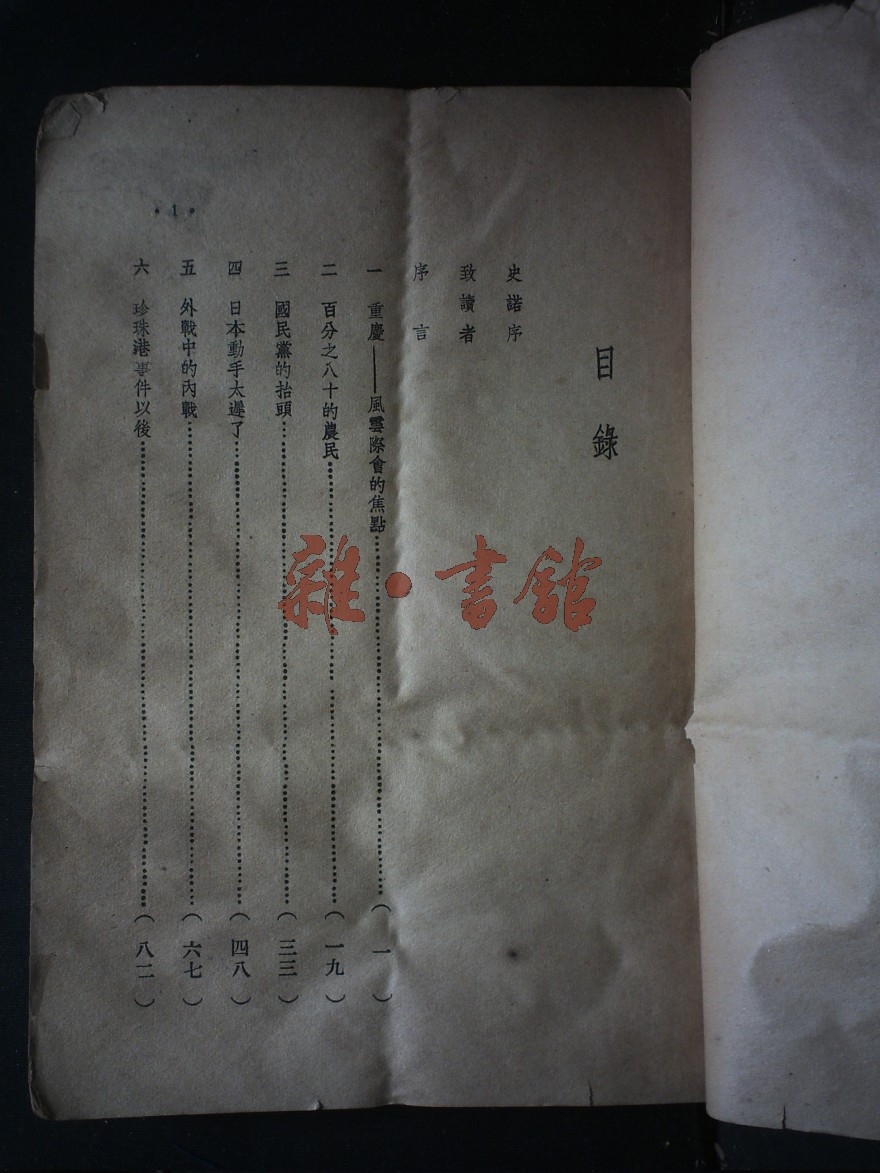 目錄
史諾序
致讀者
序言
一 重慶——風雲際會的焦點……(一)
二 百分之八十的農民……(一九)
三 國民黨的抬頭……(三三)
四 日本動手太遲了……(四八)
五 外戰中的內戰……(六七)
六 珍珠港事件以後……(八二)
•1•
雜·書館